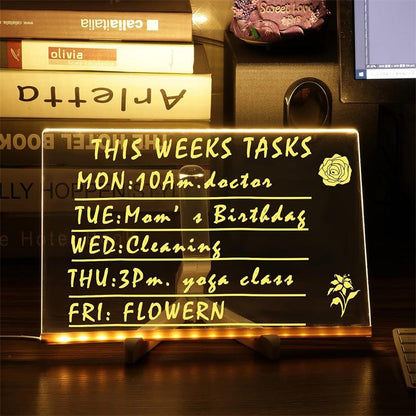 callaitalica
olivia
Arletta
THE HOTEL BOOK
Sweet Love
THIS WEEKS TASKS
MON:10Am.doctor
TUE:Mom's Birthdag
WED:Cleaning
THU:3Pm. yoga class
FRI: FLOWERN